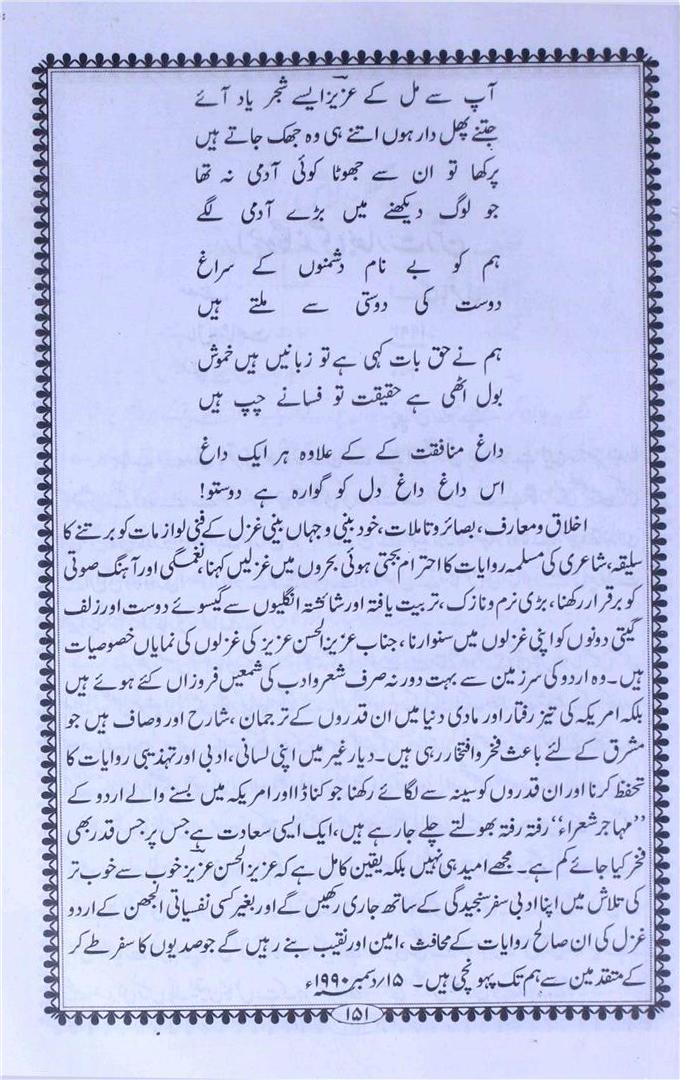 آپ سے مل کے عزیز ایسے شجر یاد آئے
جتنے پھل دار ہوں اتنے ہی وہ جھک جاتے ہیں
پرکھا تو ان سے جھوٹا کوئی آدمی نہ تھا
جو لوگ دیکھنے میں بڑے آدمی لگے
ہم کو بے نام دشمنوں کے سراغ
دوست کی دوستی سے ملتے ہیں
ہم نے حق بات کہی ہے تو زبانیں ہیں خموش
بول اٹھی ہے حقیقت تو فسانے چپ ہیں
داغ منافقت کے کے علاوہ ہر ایک داغ
اس داغ داغ دل کو گوارہ ہے دوستو!
اخلاق و معارف، بصائر و تاملات، خود بینی و جہاں بینی غزل کے فنی لوازمات کو برتنے کا
سلیقہ، شاعری کی مسلمہ روایات کا احترام بجتی ہوئی بحروں میں غزلیں کہنا، نغمگی اور آہنگ صوتی
کو برقرار رکھنا، بڑی نرم و نازک، تربیت یافتہ اور شائستہ انگلیوں سے گیسوئے دوست اور زلف
گیتی دونوں کو اپنی غزلوں میں سنوارنا، جناب عزیز الحسن عزیز کی غزلوں کی نمایاں خصوصیات
ہیں۔ وہ اردو کی سرزمین سے بہت دور نہ صرف شعر و ادب کی شمعیں فروزاں کئے ہوئے ہیں
بلکہ امریکہ کی تیز رفتار اور مادی دنیا میں ان قدروں کے ترجمان، شارح اور وصاف ہیں جو
مشرق کے لئے باعث فخر و افتخار رہی ہیں۔ دیار غیر میں اپنی لسانی، ادبی اور تہذیبی روایات کا
تحفظ کرنا اور ان قدروں کو سینہ سے لگائے رکھنا جو کناڈا اور امریکہ میں بسنے والے اردو کے
''مہاجر شعراء'' رفتہ رفتہ بھولتے چلے جا رہے ہیں، ایک ایسی سعادت ہے جس پر جس قدر بھی
فخر کیا جائے کم ہے۔ مجھے امید ہی نہیں بلکہ یقین کامل ہے کہ عزیز الحسن عزیز خوب سے خوب تر
کی تلاش میں اپنا ادبی سفر سنجیدگی کے ساتھ جاری رکھیں گے اور بغیر کسی نفسیاتی الجھن کے اردو
غزل کی ان صالح روایات کے محافث، امین اور نقیب بنے رہیں گے جو صدیوں کا سفر طے کر
کے متقدمین سے ہم تک پہونچی ہیں۔ ۱۵/دسمبر ۱۹۹۰ء
۱۵۱